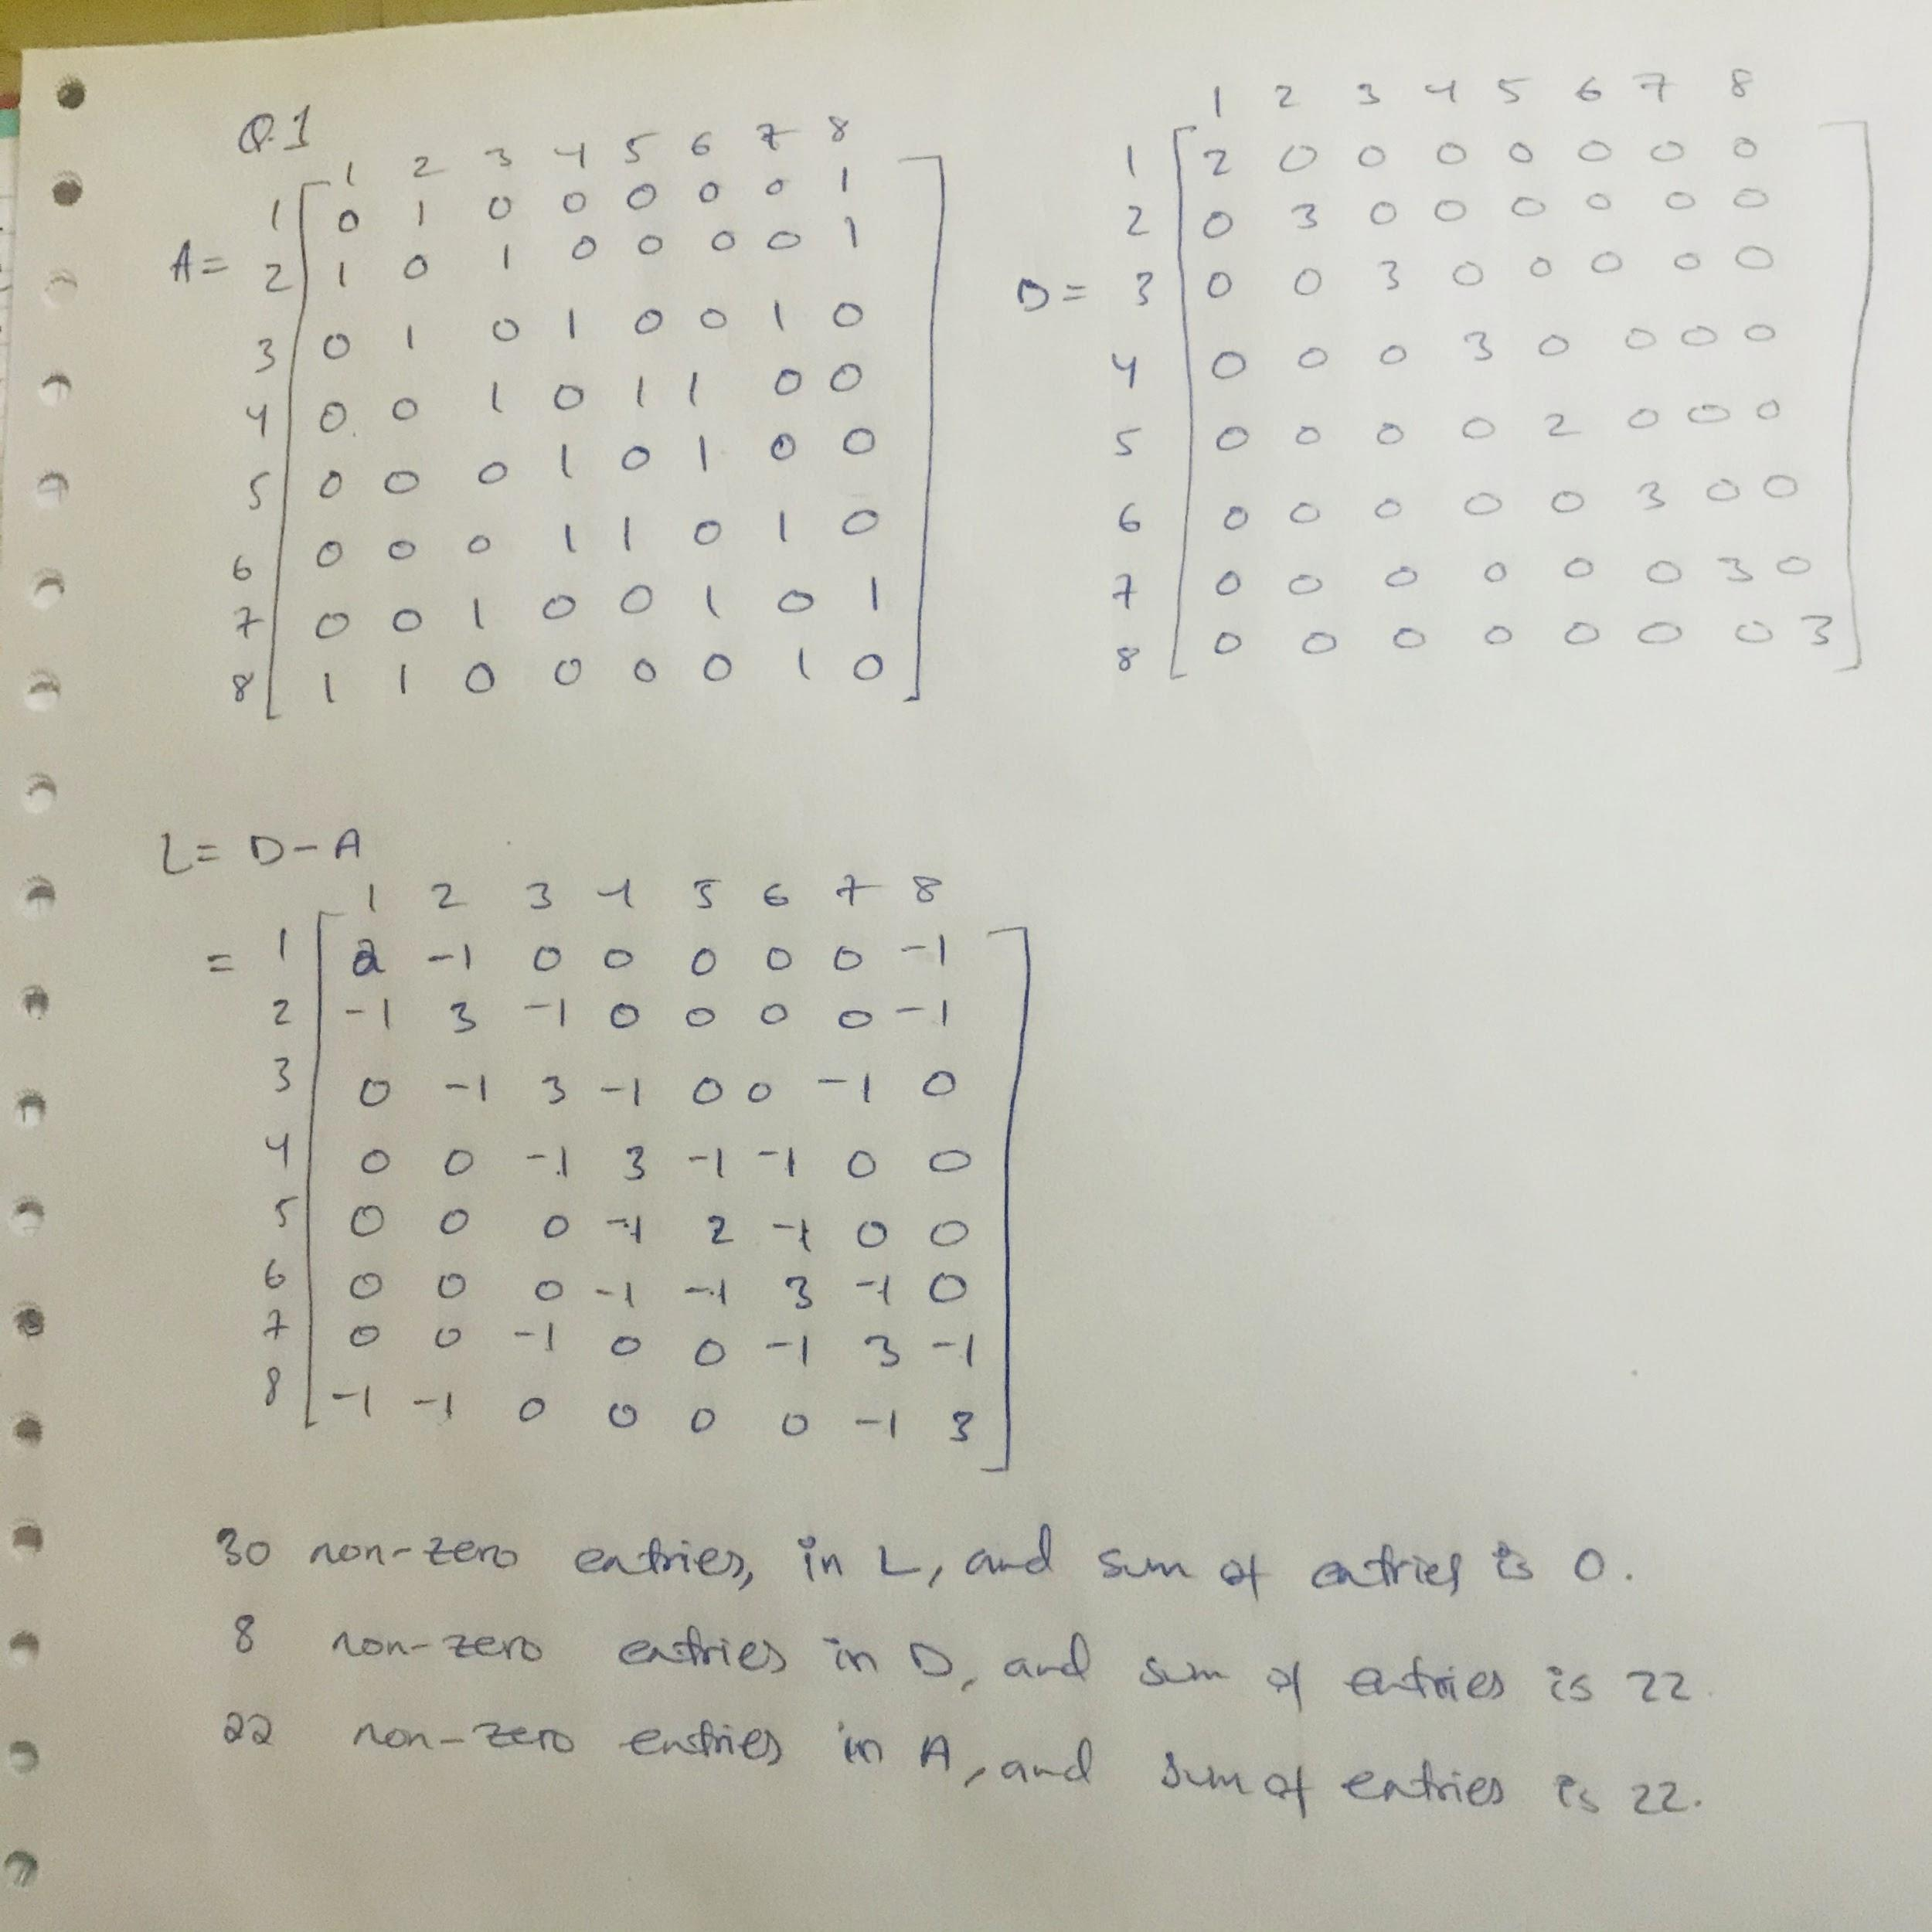 Q.1
1 2 3 4 5 6 7 8
1 0 1 0 0 0 0 0 1
A= 2 1 0 1 0 0 0 0 1
3 0 1 0 1 0 0 1 0
4 0 0 1 0 1 1 0 0
5 0 0 0 1 0 1 0 0
6 0 0 0 1 1 0 1 0
7 0 0 1 0 0 1 0 1
8 1 1 0 0 0 0 1 0
1 2 3 4 5 6 7 8
1 2 0 0 0 0 0 0 0
2 0 3 0 0 0 0 0 0
D= 3 0 0 3 0 0 0 0 0
4 0 0 0 3 0 0 0 0
5 0 0 0 0 2 0 0 0
6 0 0 0 0 0 3 0 0
7 0 0 0 0 0 0 3 0
8 0 0 0 0 0 0 0 3
L= D-A
1 2 3 4 5 6 7 8
= 1 2 -1 0 0 0 0 0 -1
2 -1 3 -1 0 0 0 0 -1
3 0 -1 3 -1 0 0 -1 0
4 0 0 -1 3 -1 -1 0 0
5 0 0 0 -1 2 -1 0 0
6 0 0 0 -1 -1 3 -1 0
7 0 0 -1 0 0 -1 3 -1
8 -1 -1 0 0 0 0 -1 3
30 non-zero entries, in L, and sum of entries is 0.
8 non-zero entries in D, and sum of entries is 22
22 non-zero entries in A, and sum of entries is 22.